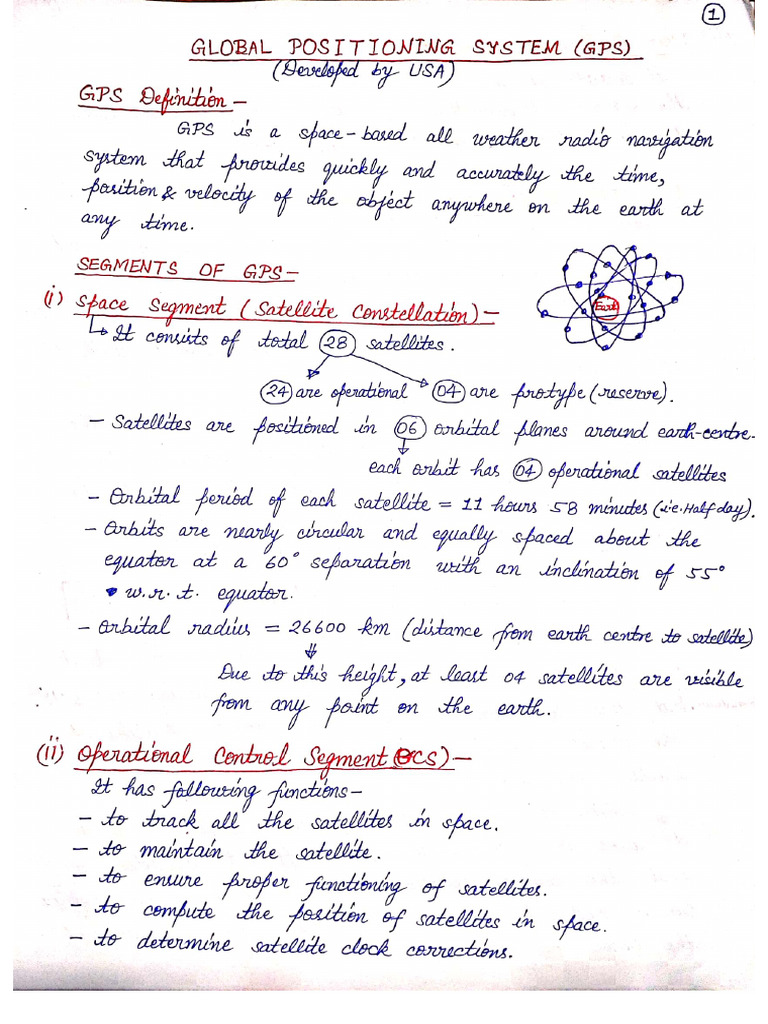 1
GLOBAL POSITIONING SYSTEM (GPS)
(Developed by USA)
GPS Definition -
GPS is a space-based all weather radio navigation
system that provides quickly and accurately the time,
position & velocity of the object anywhere on the earth at
any time.
SEGMENTS OF GPS -
(i) Space Segment (Satellite Constellation) -
Earth
It consists of total 28 satellites.
24 are operational 04 are protype (reserve).
- Satellites are positioned in 06 orbital planes around earth-centre.
each orbit has 04 operational satellites
- Orbital period of each satellite = 11 hours 58 minutes (i.e. Half day).
- Orbits are nearly circular and equally spaced about the
equator at a 60° separation with an inclination of 55°
w.r.t. equator.
- Orbital radius = 26600 km (distance from earth centre to satellite)
Due to this height, at least 04 satellites are visible
from any point on the earth.
(ii) Operational Control Segment (OCS) -
It has following functions -
- to track all the satellites in space.
- to maintain the satellite.
- to ensure proper functioning of satellites.
- to compute the position of satellites in space.
- to determine satellite clock corrections.